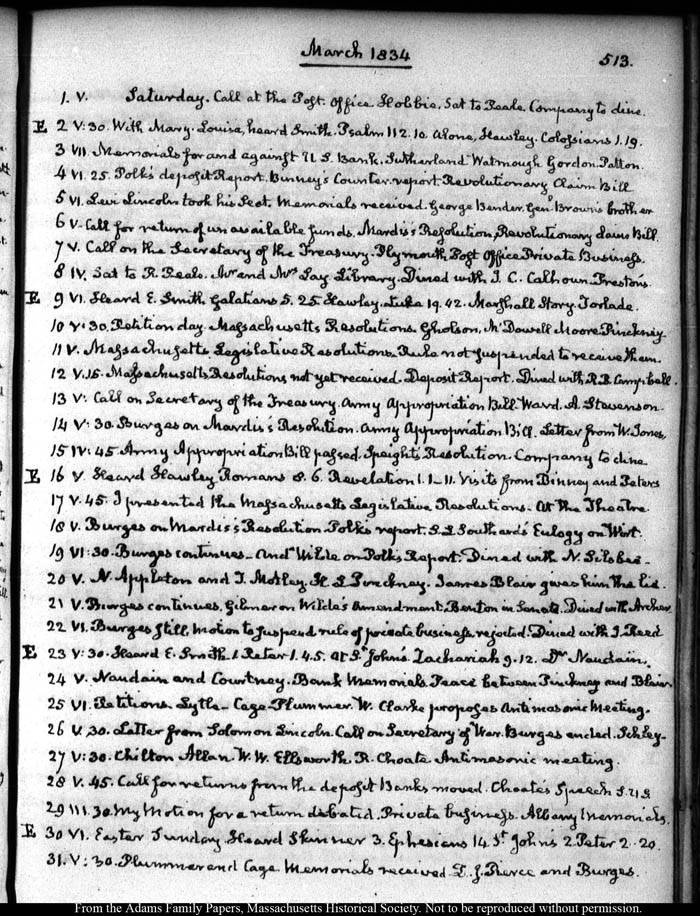 March 1834
513.
1. V. Saturday. Call at the Post Office Hobbie. Sat to Peale. Company to dine.
E 2 V:30. With Mary Louisa, heard Smith. Psalm 112. 10. Alone, Hawley. Colossians 1.19.
3 VII. Memorials for and against U S. Bank. Sutherland Watmough Gordon. Patton.
4 VI. 25. Polk's deposit Report. Binney's Counter-report Revolutionary Claim Bill
5 VI. Levi Lincoln took his Seat. Memorials received. George Bender. Genl Brown's brother
6 V. Call for return of unavailable funds. Mardis's Resolution, Revolutionary claims Bill.
7 V. Call on the Secretary of the Treasury. Plymouth, Post Office Private Business.
8 IV. Sat to R. Peale. Mr and Mrs Lay. Library. Dined with J. C. Calhoun. Preston's
E 9 VI. Heard E. Smith Galatians 5. 25 Hawley. Luke 19. 42. Marshall Story
10 V:30. Petition day. Massachusetts Resolutions. Gholson, McDowell Moore Pinckney
11 V. Massachusetts Legislative Resolutions. Rule not suspended to receive them.
12 V.15. Massachusetts Resolutions not yet received. Deposit Report. Dined with R. B. Campbell.
13 V. Call on Secretary of the Treasury. Army Appropriation Bill. Ward. A. Stevenson.
14 V:30. Burges on Mardis's Resolution. Army Appropriation Bill. Letter from W. Jones.
15 IV:45 Army Appropriation Bill passed. Speight's Resolution. Company to dine
E 16 V. Heard Hawley Romans 8. 6. Revelation 1. 1-11. Visits from Binney and Peters
17 V.45. I presented the Massachusetts Legislative Resolutions. At the Theatre
18 V. Burges on Mardis's Resolution. Polk's report. S. L Southard's Eulogy on Wirt.
19 VI:30. Burges continues. And Wilde on Polk's Report. Dined with N. Silsbee.
20 V. N. Appleton and T. Motley. H L Pinckney. James Blair gives him the lie.
21 V. Burges continues. Gilmer on Wilde's Amendment. Benton in Senate. Dined with Archer
22 VI. Burges still, motion to suspend rule of private business rejected. Dined with J. Reed
E 23 V:30. Heard E. Smith 1. Peter 1. 4.5. At St John's Zachariah 9. 12. Dr Naudain.
24 V. Naudain and Courtney. Bank Memorials. Peace between Pinckney and Blair
25 VI. Petitions. Lytle. Cage. Plummer. W. Clarke proposes Antimasonic Meeting.
26 V. 30. Letter from Solomon Lincoln. Call on Secretary of War. Burges ended. Schley.
27 V:30. Chilton Allan. W. W. Ellsworth. R. Choate. Antimasonic meeting.
28 V. 45. Call for returns from the deposit Banks moved. Choate's Speech
29 III.30. My Motion for a return debated. Private business. Albany Memorials.
E 30 VI. Easter Sunday Heard Skinner 3. Ephesians 14. St John's 2. Peter 2. 20.
31. V:30. Plummer and Cage Memorials received Pierce and Burges.
From the Adams Family Papers, Massachusetts Historical Society. Not to be reproduced without permission.